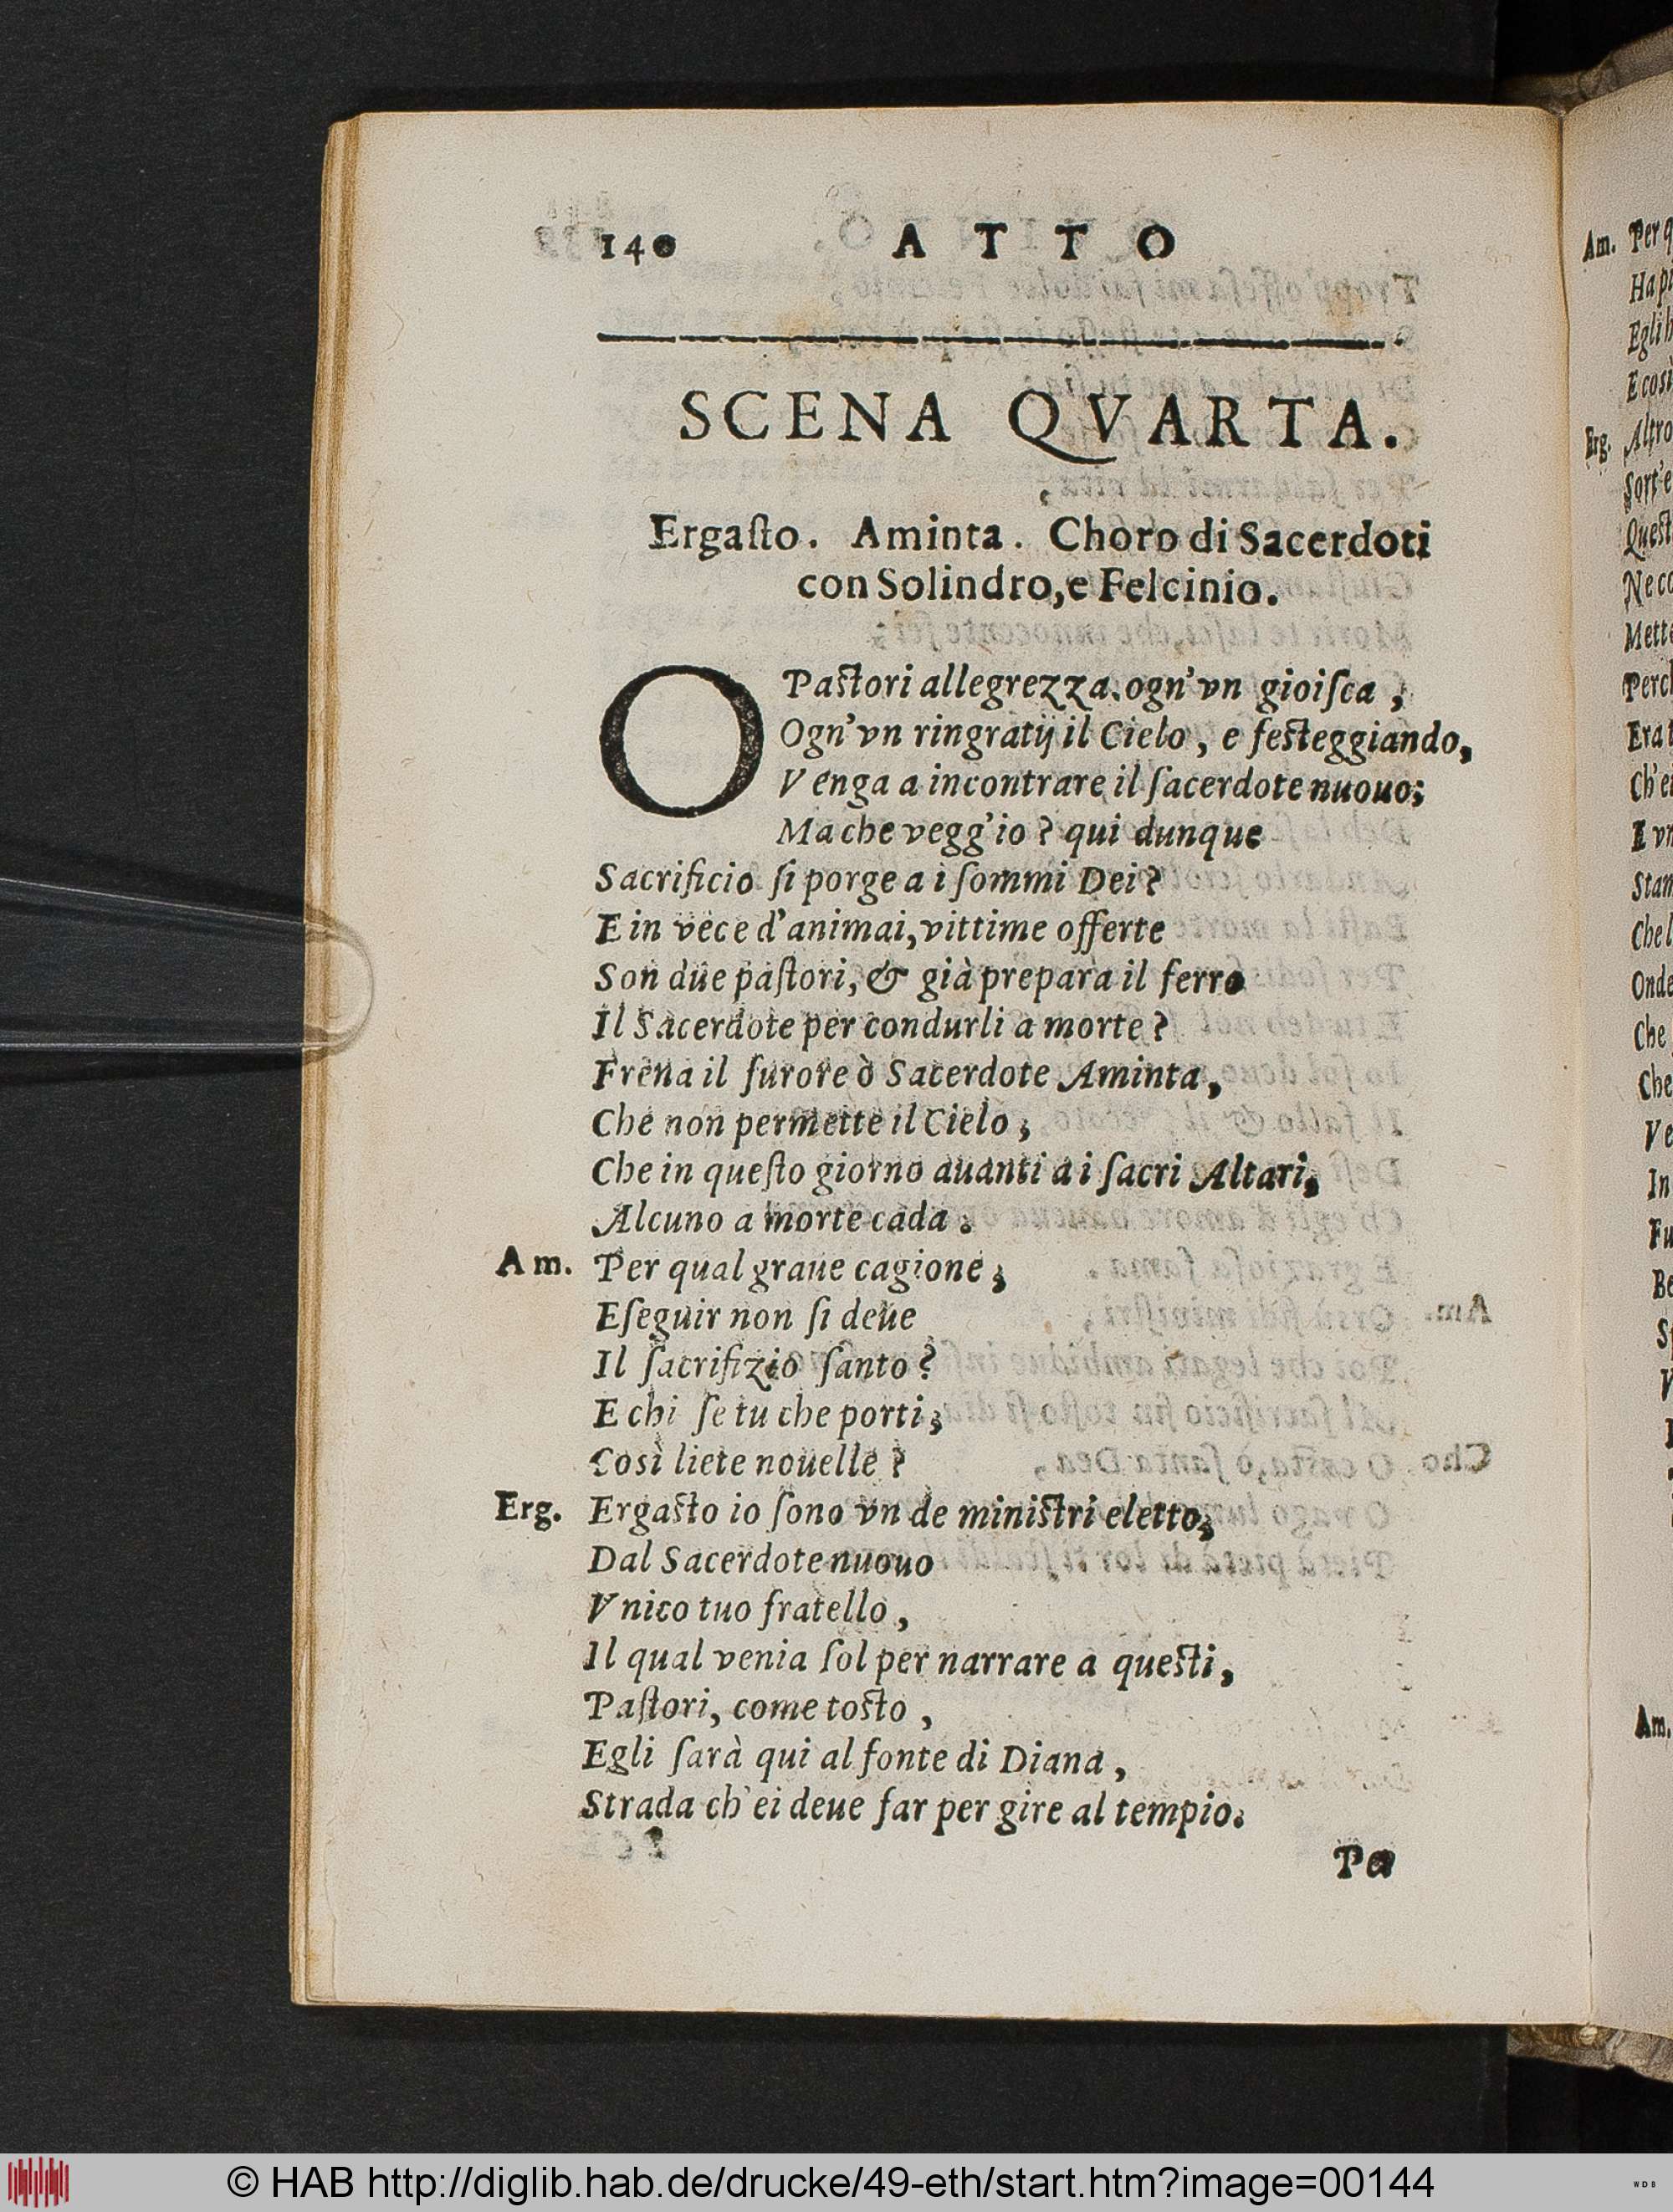 140 ATTO
SCENA QVARTA.
Ergaſto. Aminta. Choro di Sacerdoti
con Solindro, e Felcinio.
O Paſtori allegrezza, ogn'vn gioiſca,
Ogn'vn ringratij il Cielo, e feſteggiando,
Venga a incontrare il ſacerdote nuouo;
Ma che vegg'io? qui dunque
Sacrificio ſi porge a i ſommi Dei?
E in vece d'animai, vittime offerte
Son due paſtori, & già prepara il ferro
Il Sacerdote per condurli a morte?
Frena il furore ò Sacerdote Aminta,
Che non permette il Cielo;
Che in queſto giorno auanti a i ſacri Altari,
Alcuno a morte cada.
Am. Per qual graue cagione;
Eſeguir non ſi deue
Il ſacrifizio ſanto?
E chi ſe tu che porti;
Così liete nouelle?
Erg. Ergaſto io ſono vn de miniſtri eletto;
Dal Sacerdote nuouo
Vnico tuo fratello,
Il qual venia ſol per narrare a queſti,
Paſtori, come toſto,
Egli ſarà qui al fonte di Diana,
Strada ch'ei deue far per gire al tempio.
Pa
Am. Per q
Ha pi
Egli h
E così
Erg. Altro
Sort'e
Queſt
Ne co
Mette
Perch
Era t
Ch'ei
E vn
Stan
Che l
Onde
Che
Che
Ve
In
Fu
Be
Am.
© HAB http://diglib.hab.de/drucke/49-eth/start.htm?image=00144
WDB